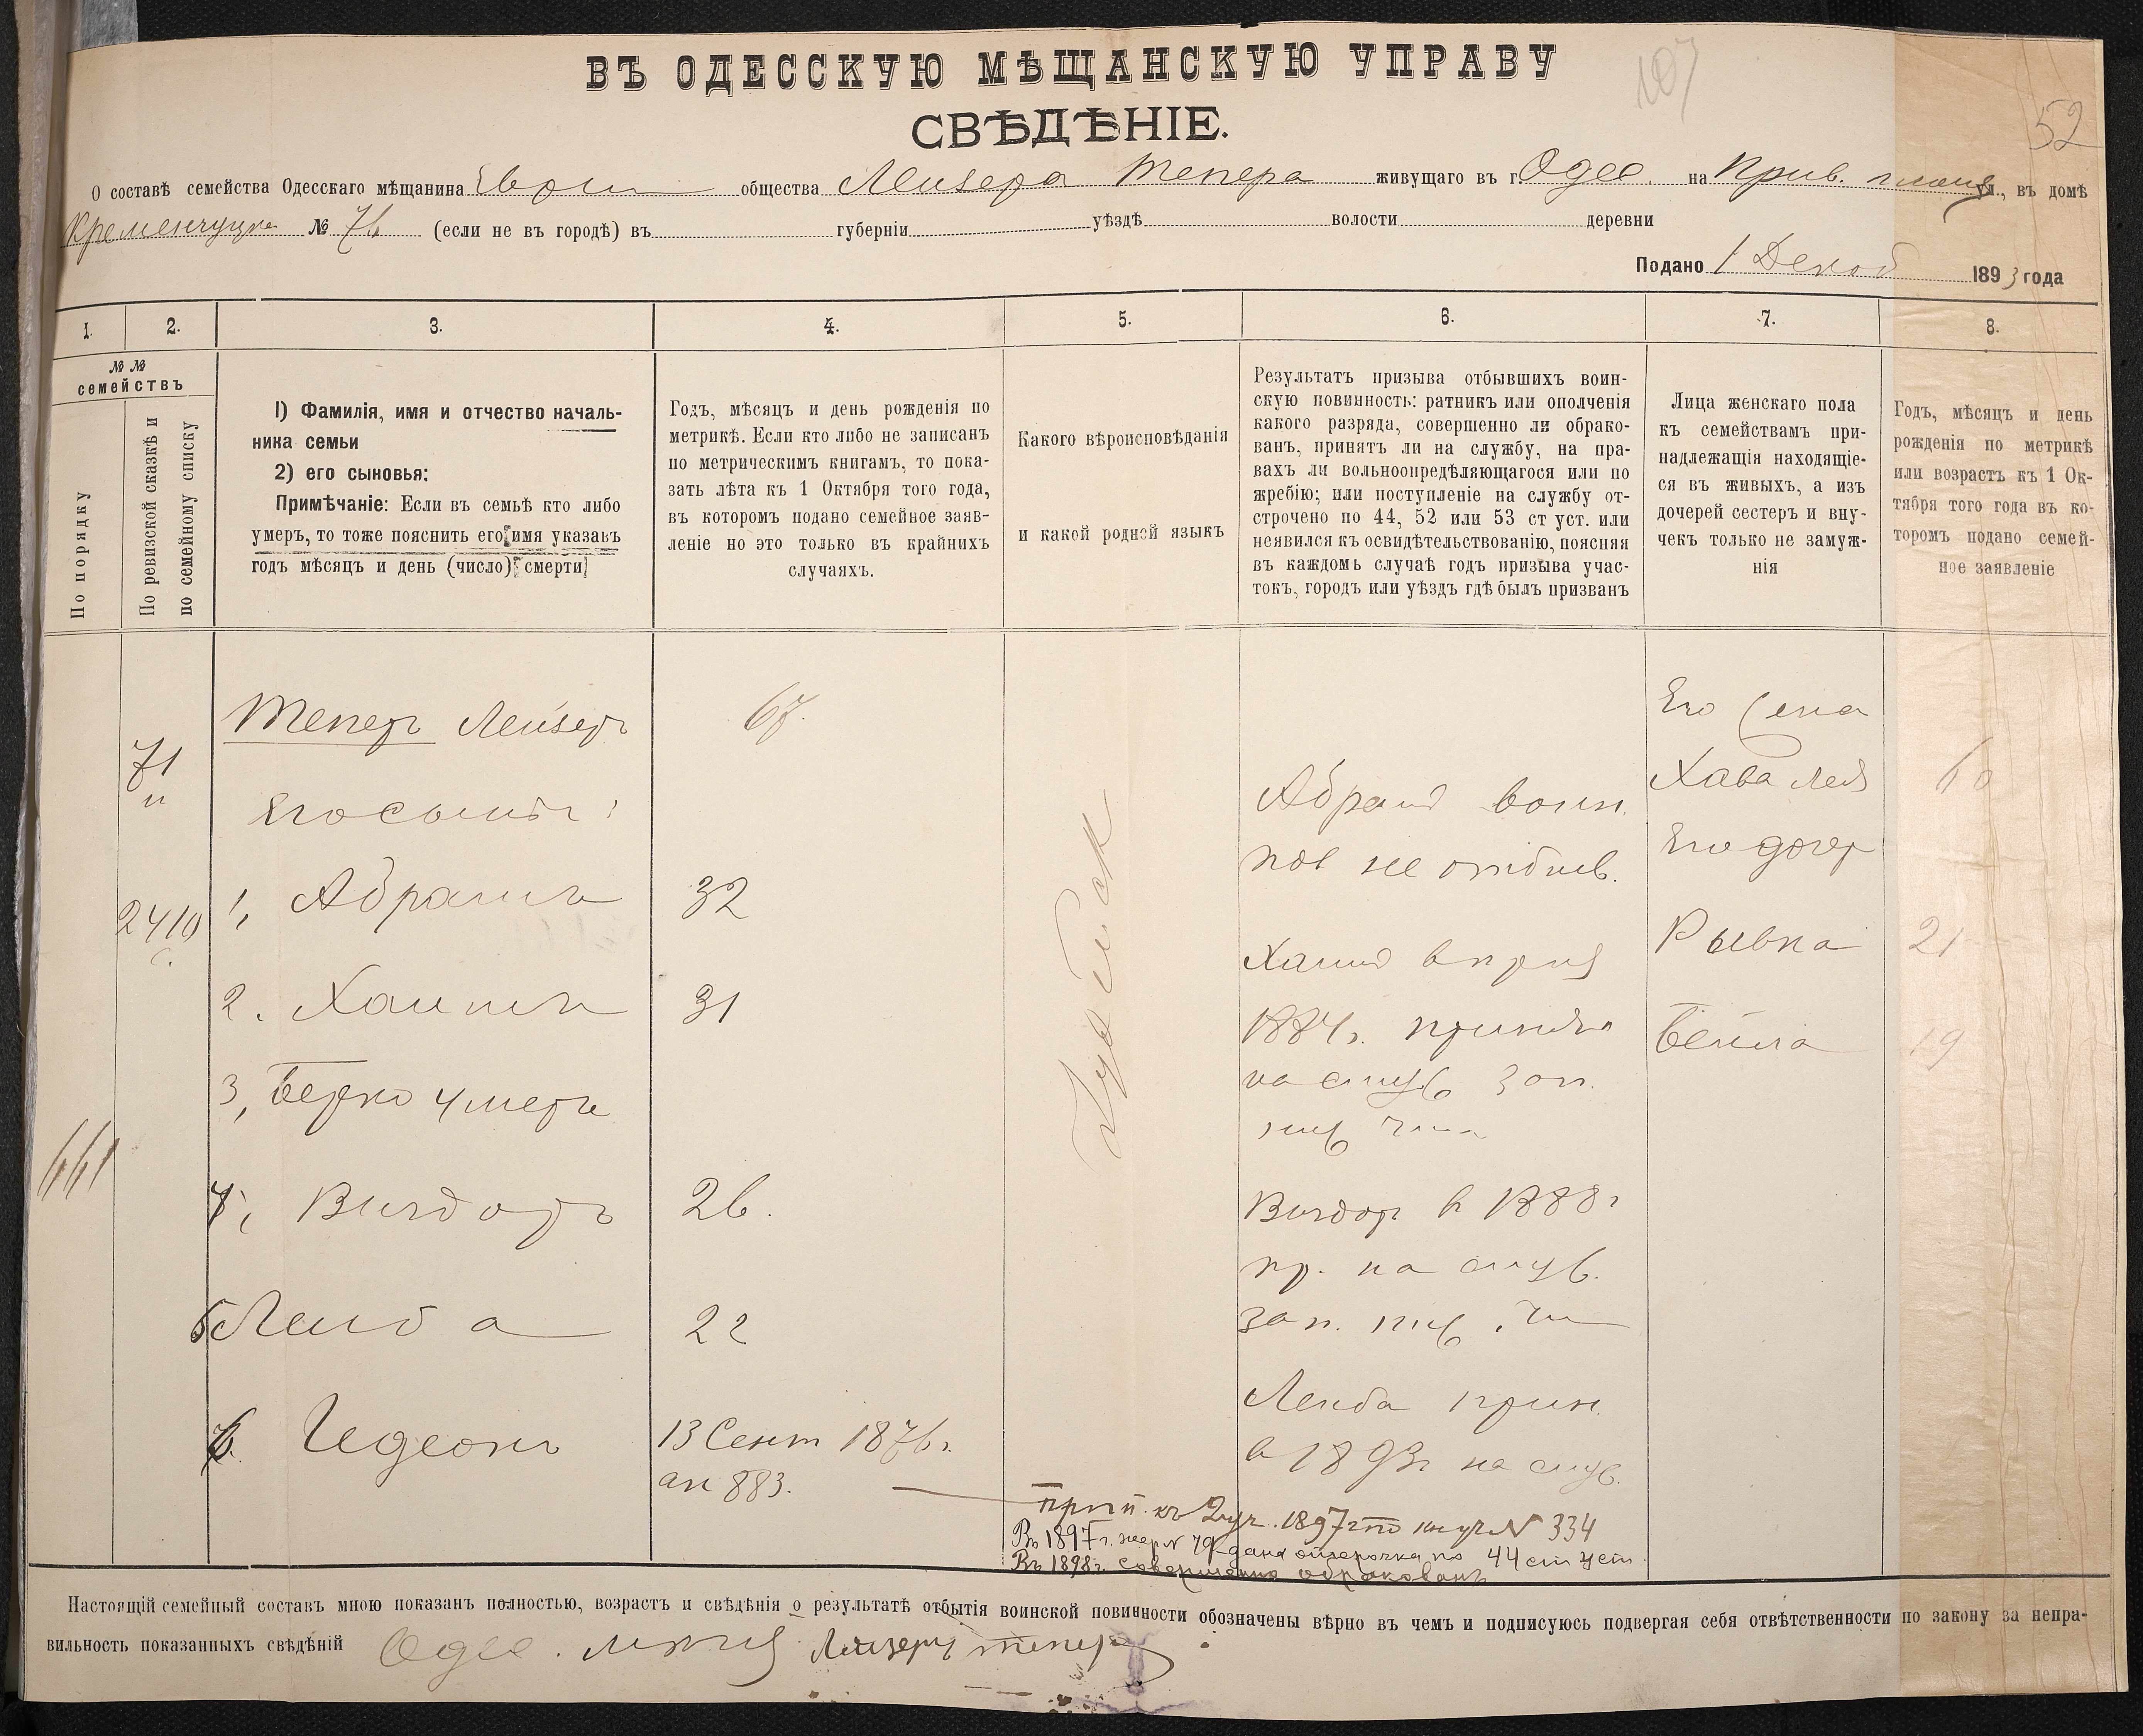 ВЪ ОДЕССКУЮ МѢЩАНСКУЮ УПРАВУ
107
СВѢДѢНІЕ.
52
О составѣ семейства Одесскаго мѣщанина Евр общества Лейзера Тепера живущаго въ г. Одес. на Прив. ул., въ домѣ
№ 76 (если не въ городѣ) въ губерніи уѣздѣ волости деревни
Подано 1 Декаб 1893 года
1. 2. 3. 4. 5. 6. 7. 8.
№ №
семействъ
По порядку
По ревизской сказкѣ и
по семейному списку
1) Фамилія, имя и отчество началь-
ника семьи
2) его сыновья:
Примѣчаніе: Если въ семьѣ кто либо
умеръ, то тоже пояснить его имя указавъ
годъ мѣсяцъ и день (число) смерти
Годъ, мѣсяцъ и день рожденія по
метрикѣ. Если кто либо не записанъ
по метрическимъ книгамъ, то пока-
зать лѣта къ 1 Октября того года,
въ которомъ подано семейное заяв-
леніе но это только въ крайнихъ
случаяхъ.
Какого вѣроисповѣданія
и какой родной языкъ
Результатъ призыва отбывшихъ воин-
скую повинность: ратникъ или ополченія
какого разряда, совершенно ли обрако-
ванъ, принятъ ли на службу, на пра-
вахъ ли вольноопредѣляющагося или по
жребію; или поступленіе на службу от-
строчено по 44, 52 или 53 ст уст. или
неявился къ освидѣтельствованію, поясняя
въ каждомъ случаѣ годъ призыва учас-
токъ, городъ или уѣздъ гдѣ былъ призванъ
Лица женскаго пола
къ семействамъ при-
надлежащія находящіе-
ся въ живыхъ, а изъ
дочерей сестеръ и вну-
чекъ только не замуж-
нія
Годъ, мѣсяцъ и день
рожденія по метрикѣ
или возрастъ къ 1 Ок-
тября того года въ ко-
торомъ подано семей-
ное заявленіе
661
71
и
2410
с.
Теперъ Лейзеръ 67.
Его сыновъя:
1, Абрамъ 32
2. Хаимъ 31
3, Берко умеръ
4, Вигдоръ 26.
5 Лейба 22
6. Гедеонъ 13 Сент 1876 г.
ак 883.
Іудейск
Абрам воин.
пов не отбыв.
Хаим в приз
1884 г. принятъ
на служ зап.
ниж чин
Вигдор в 1888 г
пр. на служ.
зап. ниж. чин
Лейба прин.
в 1893 г на служ.
Его жена
Хава Лея 60
Его дочер
Рывка 21
Бейла 19
прип. къ 2 уч. 1897 г по № 334
Въ 1897 г. жер № 79 дана отсрочка по 44 ст уст.
Въ 1898 г. совершенно обракованъ
Настоящій семейный составъ мною показанъ полностью, возрастъ и свѣдѣнія о результатѣ отбытія воинской повинности обозначены вѣрно въ чемъ и подписуюсь подвергая себя отвѣтственности по закону за непра-
вильность показанныхъ свѣдѣній Одес. Лейзеръ Теперъ